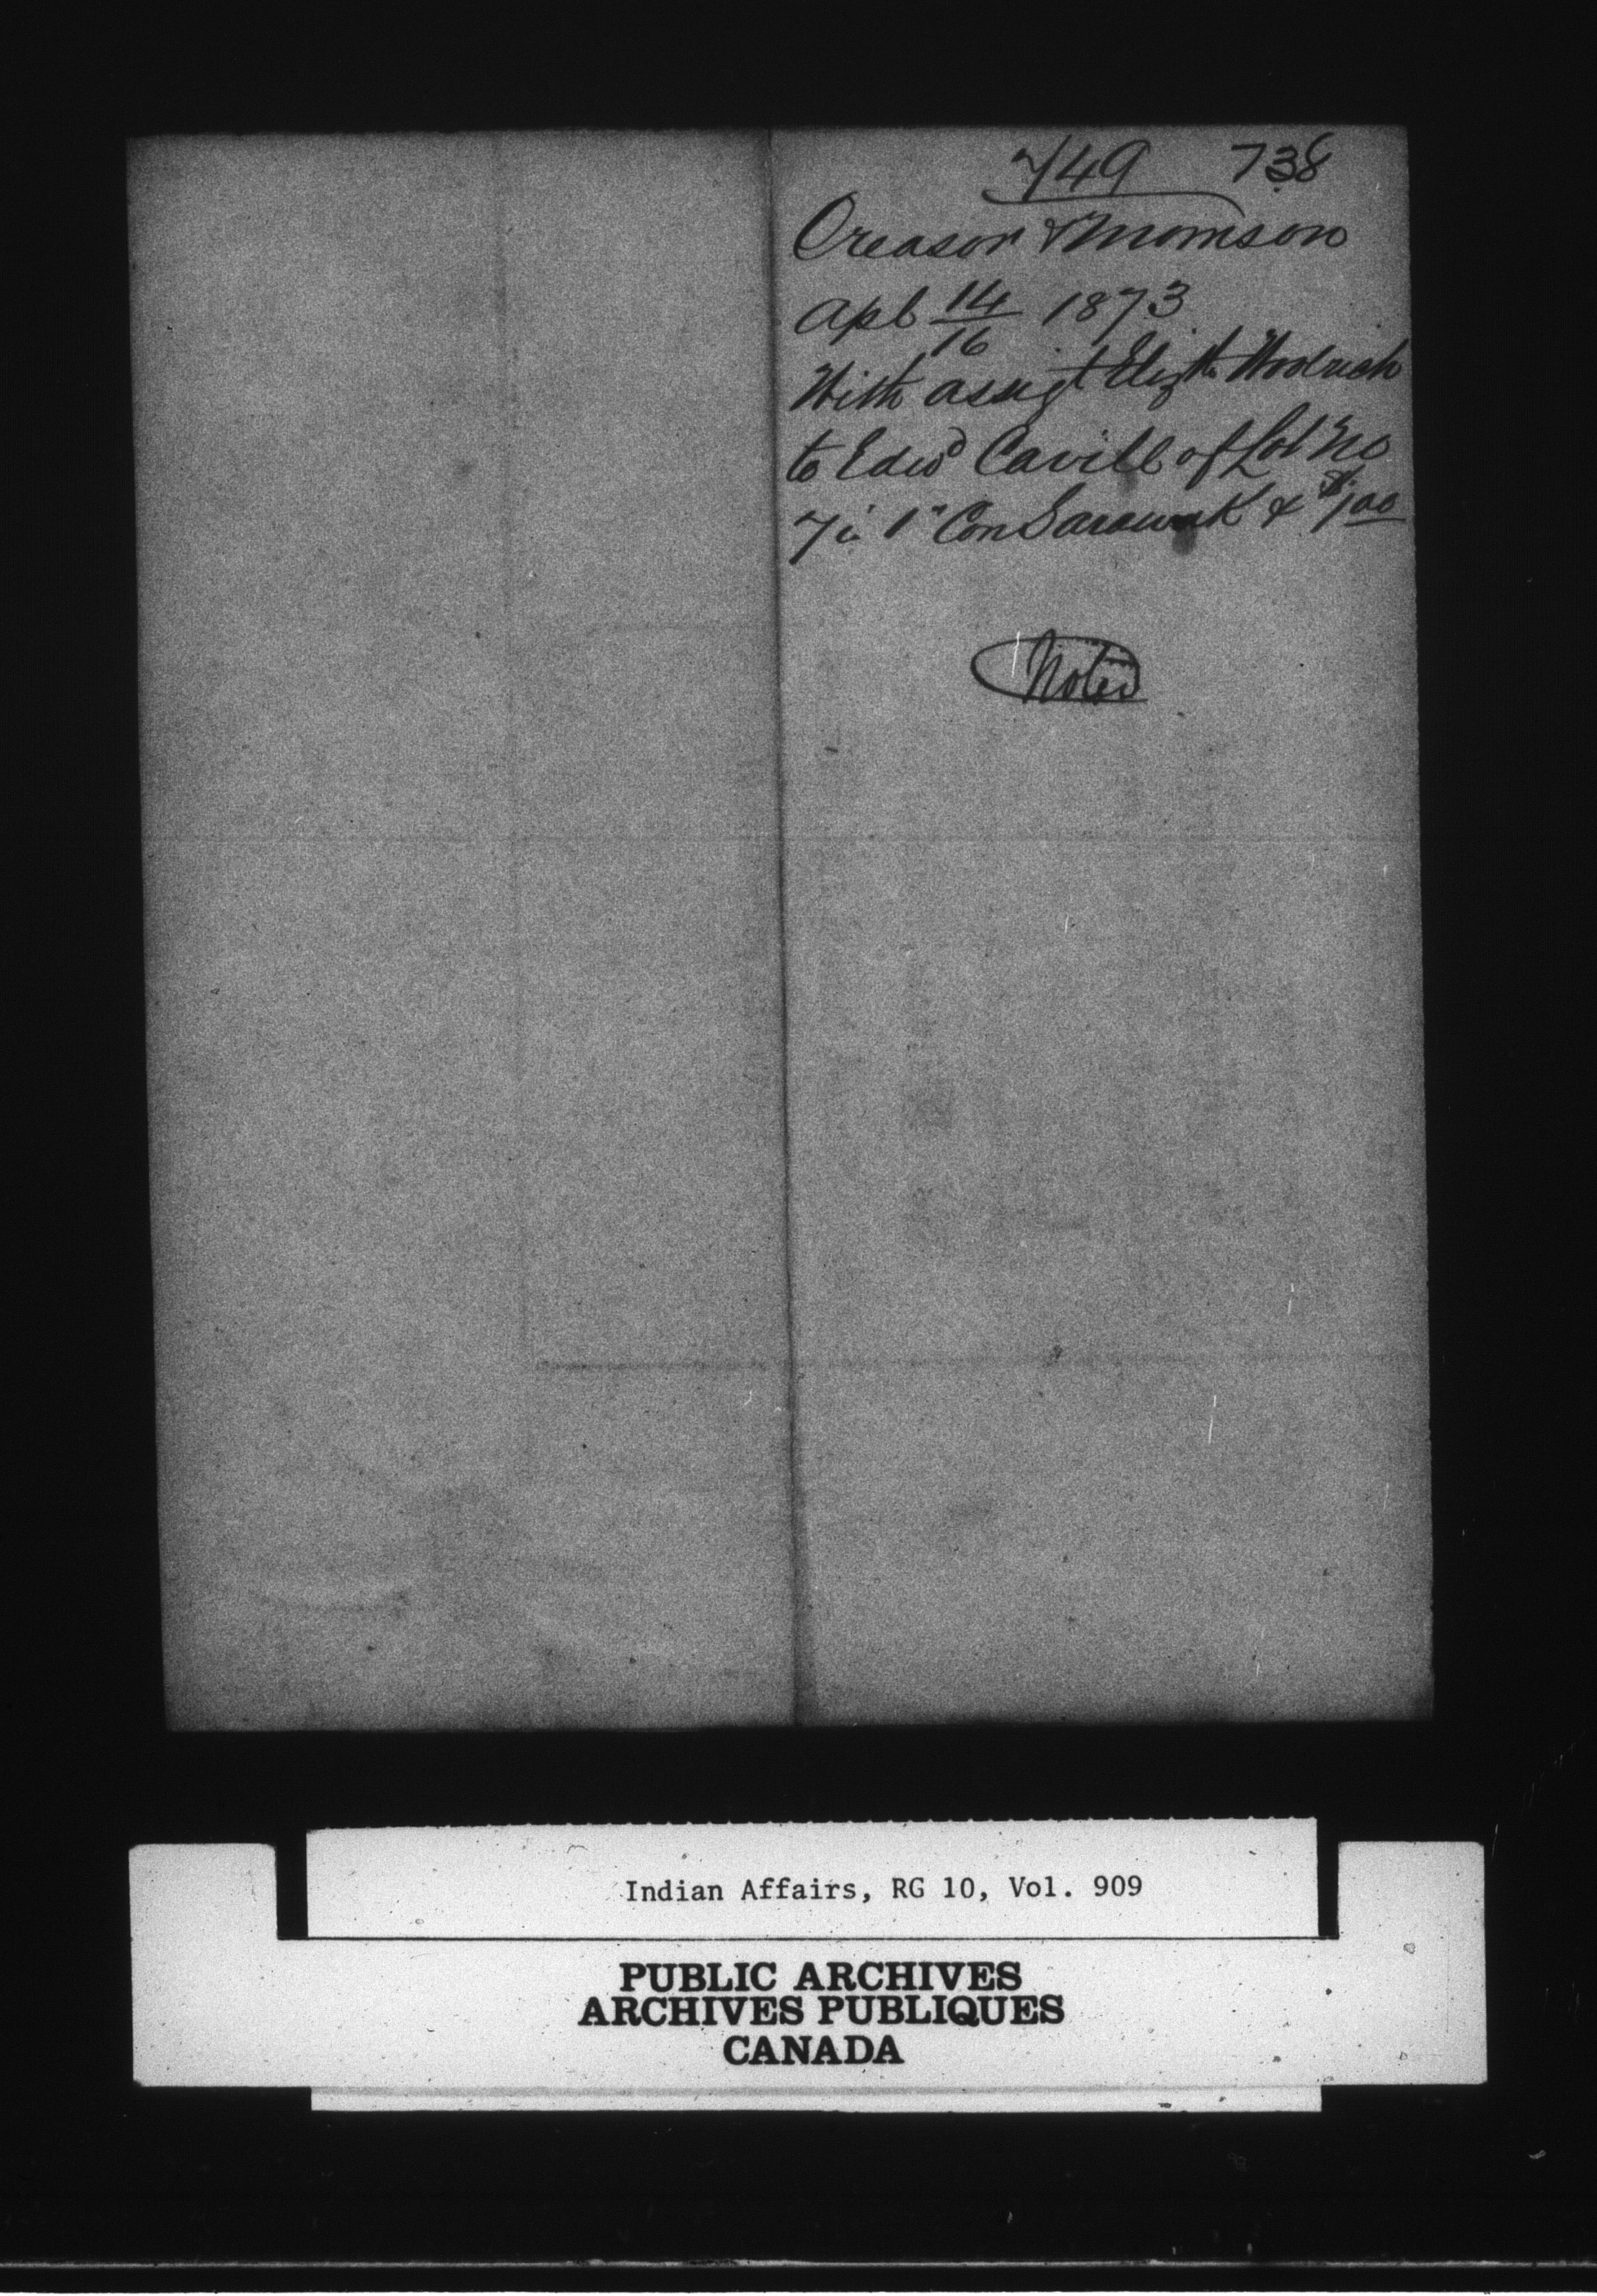 749 738
Creasor & Morrison
Apl 14/16 1873
With assigt Elizth
to Edwd Cavill of Lot No
7 in 1" Con Sarawak & $1.00
Noted
Indian Affairs, RG 10, Vol. 909
PUBLIC ARCHIVES
ARCHIVES PUBLIQUES
CANADA